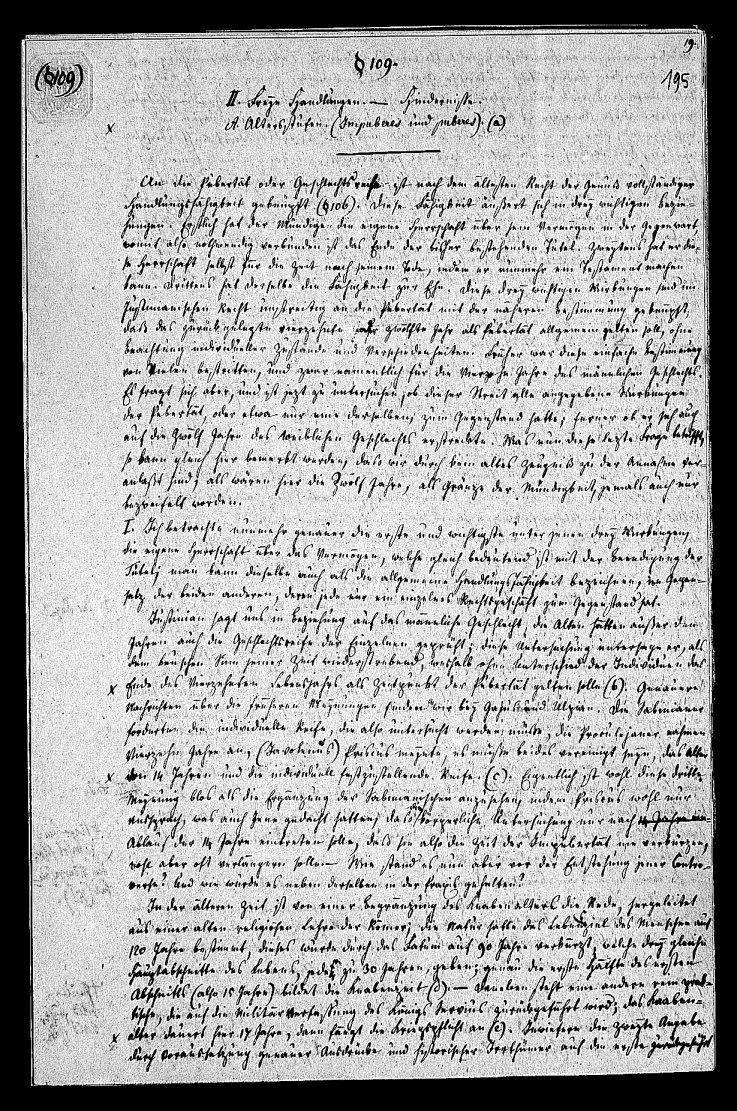 19.
(§109)
§ 109.
195
II. Freye Handlungen. — Hindernisse.
x A. Altersstufen. (Impuberes und puberes) (a)
An die Pubertät oder Geschlechtsreife ist nach dem ältesten Recht der Genuß vollständiger
Handlungsfähigkeit geknüpft (§106). Diese Fähigkeit äußert sich in drey wichtigen Bezie-
hungen. Erstlich hat der Mündige die eigene Herrschaft über sein Vermögen in der Gegenwart,
womit also nothwendig verbunden ist das Ende der bisher bestehenden Tutel. Zweytens hat er die-
se Herrschaft selbst für die Zeit nach seinem Tode, indem er nunmehr ein Testament machen
kann. Drittens hat derselbe die Fähigkeit zur Ehe. Diese drey wichtigen Wirkungen sind im
Justinianischen Recht unstreitig an die Pubertät mit der näheren Bestimmung geknüpft,
daß das zurückgelegte vierzehnte oder zwölfte Jahr als Pubertät allgemein gelten soll, ohne
Beachtung individueller Zustände und Verschiedenheiten. Früher war diese einfache Bestimmung
von Vielen bestritten, und zwar namentlich für die Vierzehn Jahre des männlichen Geschlechts.
Es fragt sich aber, und ist jetzt zu untersuchen, ob dieser Streit alle angegebene Wirkungen
der Pubertät, oder etwa nur eine derselben, zum Gegenstand hatte; ferner ob er sich auch
auf die Zwölf Jahre des weiblichen Geschlechts erstreckte. Was nun diese letzte Frage betrifft,
so kann gleich hier bemerkt werden, daß wir durch kein altes Zeugniß zu der Annahme ver-
anlaßt sind, als wären hier die Zwölf Jahre, als Gränze der Mündigkeit, jemals auch nur
bezweifelt worden.
I. Ich betrachte nunmehr genauer die erste und wichtigste unter jenen drey Wirkungen,
die eigene Herrschaft über das Vermögen, welche gleich bedeutend ist mit der Beendigung der
Tutel; man kann dieselbe auch als die allgemeine Handlungsfähigkeit bezeichnen, im Gegen-
satz der beiden anderen, deren jede nur ein einzelnes Rechtsgeschäft zum Gegenstand hat.
Justinian sagt uns in Beziehung auf das männliche Geschlecht, die Alten hätten außer den
Jahren auch die Geschlechtsreife der Einzelnen geprüft; diese Untersuchung untersage er, als
dem keuschen Sinn seiner Zeit widerstrebend, weshalb ohne Unterschied der Individuen das
x Ende des Vierzehnten Lebensjahrs als Zeitpunkt der Pubertät gelten solle (b). Genauere
Nachrichten über die früheren Meynungen finden wir bey Gajus und Ulpian. Die Sabinianer
forderten die individuelle Reife, die also untersucht werden müßte, die Proculejaner nahmen
Vierzehn Jahre an, (Javolenus?) Priscus meynte, es müßte beides vereinigt seyn, das Alter
x von 14 Jahren und die individuell festzustellende Reife. (c). Eigentlich ist wohl diese dritte
Meynung blos als die Ergänzung der Sabinianischen anzusehen, indem Priscus wohl nur
aussprach, was auch Jene gedacht hatten, daß die körperliche Untersuchung nur nach
Ablauf der 14 Jahre eintreten solle, daß sie also die Zeit der Impubertät nie verkürzen,
wohl aber oft verlängern sollte. — Wie stand es nun aber vor der Entstehung jener Contro-
verse? Und wie wurde es neben derselben in der Praxis gehalten?
In der älteren Zeit ist von einer Begränzung des Knabenalters die Rede, hergeleitet
aus einer alten religiösen Lehre der Römer; die Natur hatte das Lebensziel des Menschen auf
120 Jahre bestimmt, dieses wurde durch das Fatum auf 90 Jahre verkürzt, welche drey gleiche
Hauptabschnitte des Lebens, jeden zu 30 Jahren, geben; genau die erste Hälfte des ersten
Abschnitts (also 15 Jahre) bildet die Knabenzeit (d). — Daneben steht eine andere rein prak-
tische, die auf die Militärverfassung des Königs Servius zurückgeführt wird; das Knaben-
alter dauert hier 17 Jahre, dann fängt die Kriegspflicht an (e). Inwiefern die zweyte Angabe
x durch Voraussetzung genauer Ausdrücke und historischer Irrthümer auf die erste zurückgeführt